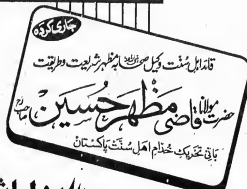 جاری کردہ
قائد اہل سنت وکیل صحابہ مظہر شریعت و طریقت
حضرت مولانا قاضی مظہر حسین صاحب
بانی تحریک خدام اہل سنت پاکستان